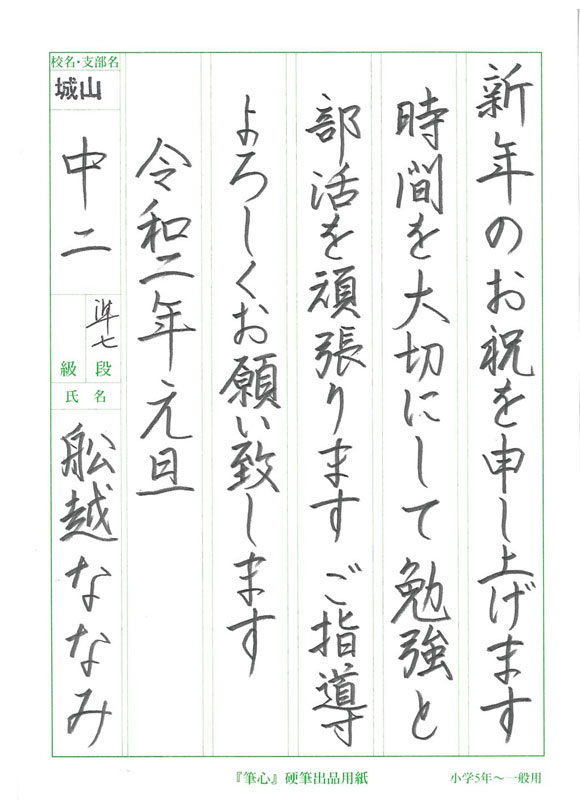 新年のお祝を申し上げます
時間を大切にして勉強と
部活を頑張ります ご指導
よろしくお願い致します
令和二年元旦
校名・支部名
城山
中二
準七
段
級
氏名
舩越ななみ
『筆心』硬筆出品用紙
小学5年～一般用